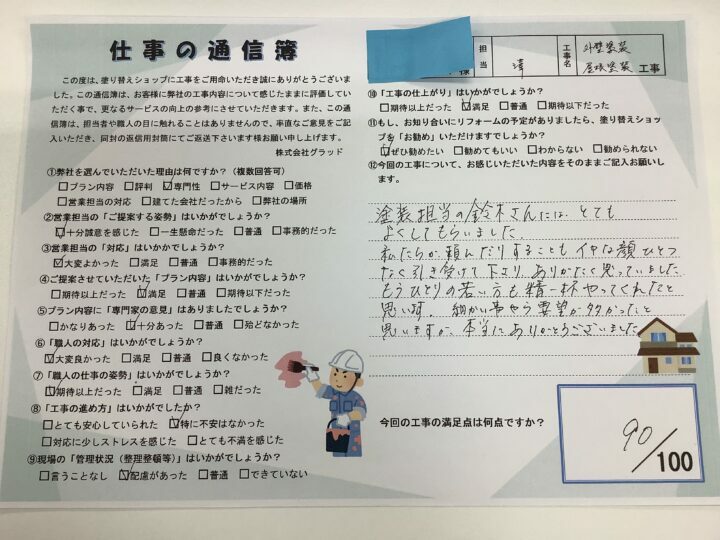 仕事の通信簿
この度は、塗り替えショップに工事をご用命いただき誠にありがとうございま
した。この通信簿は、お客様に弊社の工事内容について感じたままに評価してい
ただく事で、更なるサービスの向上の参考にさせていただきます。また、この通
信簿は、担当者や職人の目に触れることはありませんので、率直なご意見をご記
入いただき、同封の返信用封筒にてご返送下さいます様お願い申し上げます。
株式会社グラッド
①弊社を選んでいただいた理由は何ですか？（複数回答可）
□プラン内容 □評判 ☑専門性 □サービス内容 □価格
□営業担当の対応 □建てた会社だったから □弊社の場所
②営業担当の「ご提案する姿勢」はいかがでしょうか？
☑十分誠意を感じた □一生懸命だった □普通 □事務的だった
③営業担当の「対応」はいかかでしょうか？
☑大変よかった □満足 □普通 □事務的だった
④ご提案させていただいた「プラン内容」はいかがでしょうか？
□期待以上だった ☑満足 □普通 □期待以下だった
⑤プラン内容に「専門家の意見」はありましたでしょうか？
□かなりあった ☑十分あった □普通 □殆どなかった
⑥「職人の対応」はいかがでしょうか？
☑大変良かった □満足 □普通 □良くなかった
⑦「職人の仕事の姿勢」はいかがでしょうか？
☑期待以上だった □満足 □普通 □雑だった
⑧「工事の進め方」はいかがでしたか？
□とても安心していられた ☑特に不安はなかった
□対応に少しストレスを感じた □とても不満を感じた
⑨現場の「管理状況（整理整頓等）」はいかがでしょうか？
□言うことなし ☑配慮があった □普通 □できていない
様 担当 工事名 外壁塗装
屋根塗装 工事
⑩「工事の仕上がり」はいかがでしょうか？
□期待以上だった ☑満足 □普通 □期待以下だった
⑪もし、お知り合いにリフォームの予定がありましたら、塗り替えショッ
プを「お勧め」いただけますでしょうか？
☑ぜひ勧めたい □勧めてもいい □わからない □勧められない
⑫今回の工事について、お感じいただいた内容をそのままご記入お願いし
ます。
塗装担当の鈴木さんには、とても
よくしてもらいました。
私たちが頼んだりすることもイヤな顔ひとつ
なく引き受けて下さり、ありがたく思っていました
もうひとりの若い方も精一杯やってくれたと
思います。細かい事やら要望が多かったと
思いますが、本当にありがとうございました
今回の工事の満足点は何点ですか？
90/100